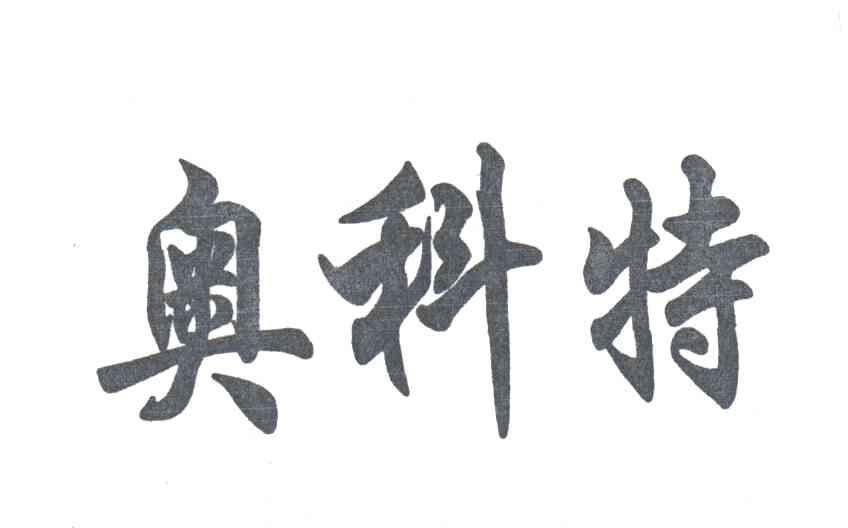 奥科特